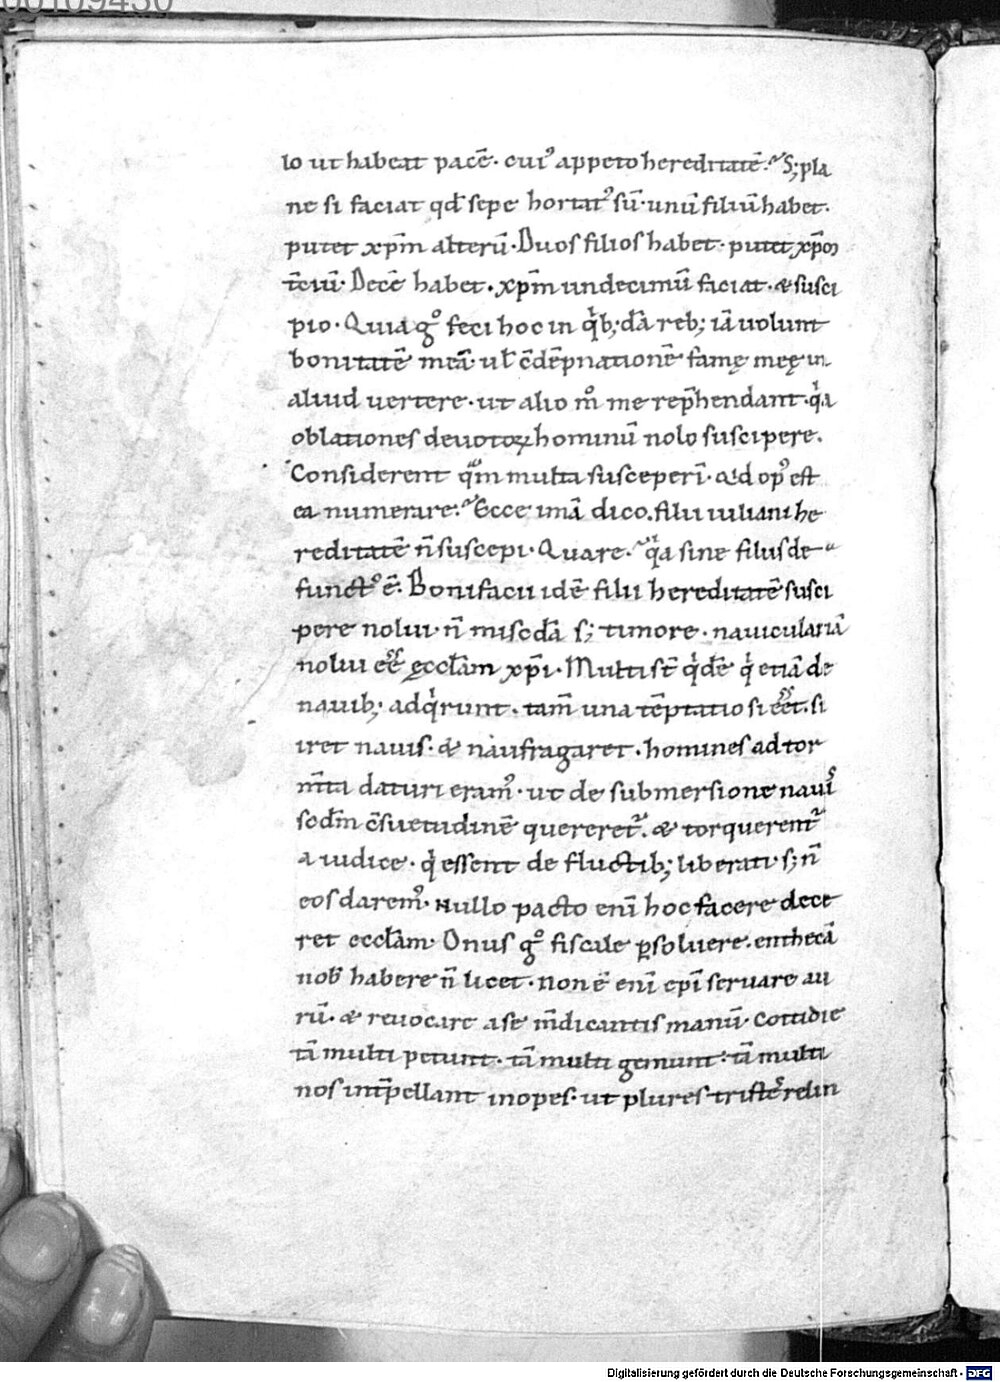 00109430
lo ut habeat pacē· cuiꝰ appeto hereditatē? S; pla
ne si faciat qđ sepe hortat᷒ sū· unū filiū habet·
putet xp̄m alterū· Duos filios habet· putet xp̄m
t̄ciū· Decē habet· xp̄m undecimū faciat· & susci
pio· Quia gͦ feci hoc in qⁱb; dā reb; iā uolunt
bonitatē meā· ul̄ c̄dēpnationē famę meę in
aliud uertere· ut alio mͦ me rep̄hendant· qᵃ
oblationes deuotoꝝ hominū nolo suscipere·
Considerent qᵃm multa susceperī· Qd opꝰ est
ea numerare? Ecce unā dico· filii iuliani he
reditatē n̄ suscepi· Quare? qᵃ sine filiis de
functꝰ ē· Bonifacii idē filii hereditatē susci
pere nolui· n̄ misc̄dā s; timore· nauiculariā
nolui eē ęccl̄am xp̄i· Multi st̄ qⁱdē qⁱ etiā de
nauib; adqⁱrunt· tam̄ una tēptatio si eēt· si
iret nauis· & naufragaret· homines ad tor
m̄ta daturi eramꝰ· ut de submersione nauis
scdm̄ c̄suetudinē quereret᷒· & torquerent᷒
a iudice· qⁱ essent de fluctib; liberati s; n̄
eos daremꝰ· Nullo pacto enī hoc facere dece
ret eccl̄am· Onus gͦ fiscale ꝑsoluere· enthecā
nob̄ habere n̄ licet· non ē enī ep̄i seruare au
rū· & reuocare a se m̄dicantis manū· Cottidie
tā multi petunt· tā multi gemunt· tā multi
nos int̄pellant inopes· ut plures tristes relin
Digitalisierung gefördert durch die Deutsche Forschungsgemeinschaft - DFG